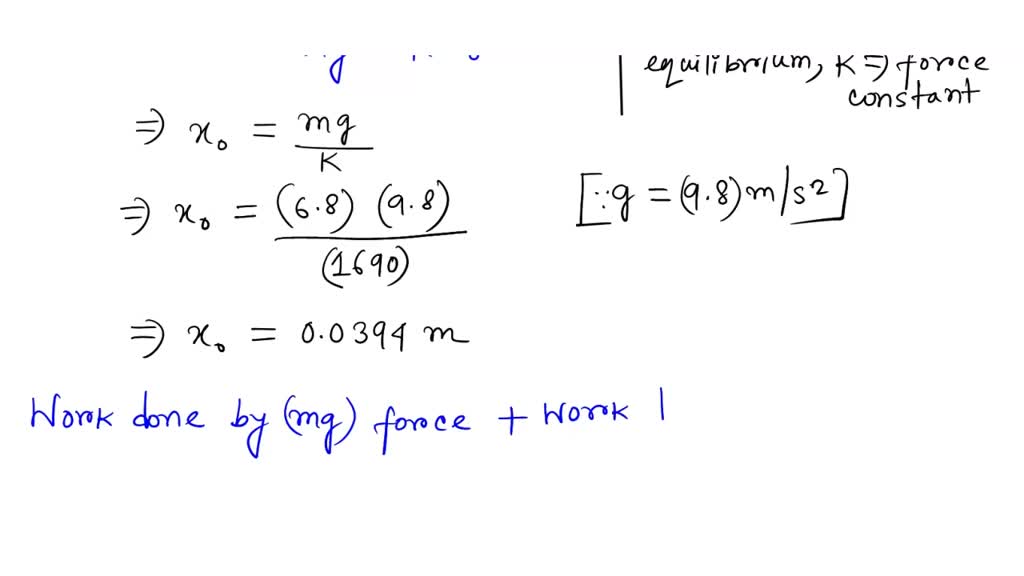 equilibrium, K ⇒ force
constant
⇒ x₀ = mg/K
⇒ x₀ = (6.8) (9.8)/(1690)
[∵ g = (9.8) m/s²]
⇒ x₀ = 0.0394 m
Work done by (mg) force + work